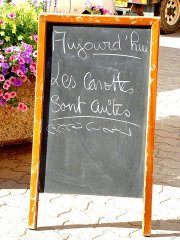 Aujourd'hui
Les Carottes
Sont Cuites